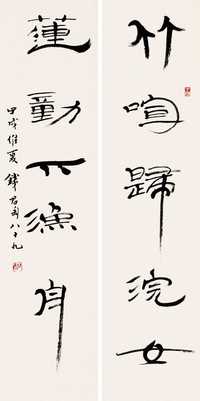 竹喧歸浣女
蓮動下漁舟
甲戌維夏 錢君匋八十九